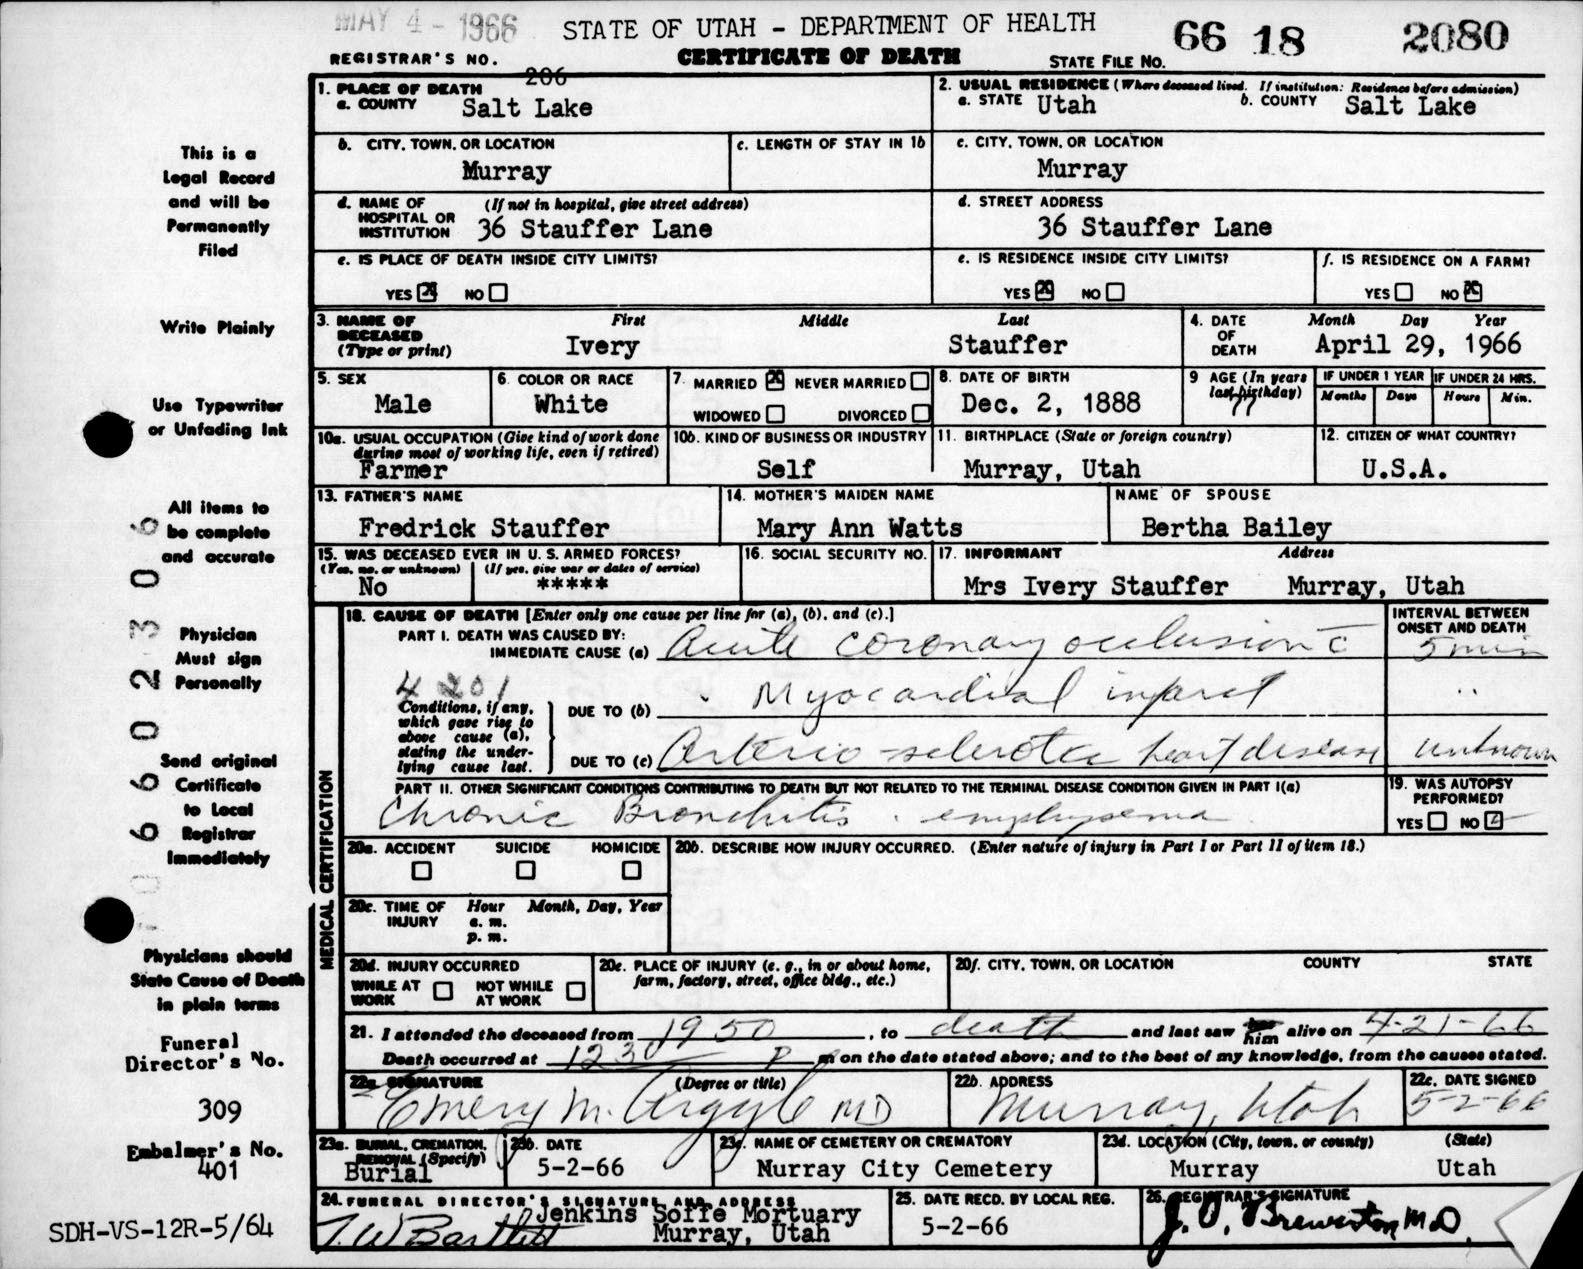 MAY 4 - 1966 STATE OF UTAH - DEPARTMENT OF HEALTH 66 18 2080
REGISTRAR'S NO. 206 CERTIFICATE OF DEATH STATE FILE NO.
1. PLACE OF DEATH
a. COUNTY Salt Lake
2. USUAL RESIDENCE (Where deceased lived. If institution: Residence before admission)
a. STATE Utah b. COUNTY Salt Lake
b. CITY, TOWN, OR LOCATION
Murray
c. LENGTH OF STAY IN 1b
c. CITY, TOWN, OR LOCATION
Murray
d. NAME OF HOSPITAL OR INSTITUTION (If not in hospital, give street address)
36 Stauffer Lane
d. STREET ADDRESS
36 Stauffer Lane
e. IS PLACE OF DEATH INSIDE CITY LIMITS?
YES X NO
e. IS RESIDENCE INSIDE CITY LIMITS?
YES X NO
f. IS RESIDENCE ON A FARM?
YES NO X
3. NAME OF DECEASED (Type or print) First Middle Last
Ivery Stauffer
4. DATE OF DEATH Month Day Year
April 29, 1966
5. SEX
Male
6. COLOR OR RACE
White
7. MARRIED X NEVER MARRIED
WIDOWED DIVORCED
8. DATE OF BIRTH
Dec. 2, 1888
9 AGE (In years last birthday)
77
IF UNDER 1 YEAR IF UNDER 24 HRS.
Months Days Hours Min.
10a. USUAL OCCUPATION (Give kind of work done during most of working life, even if retired)
Farmer
10b. KIND OF BUSINESS OR INDUSTRY
Self
11. BIRTHPLACE (State or foreign country)
Murray, Utah
12. CITIZEN OF WHAT COUNTRY?
U.S.A.
13. FATHER'S NAME
Fredrick Stauffer
14. MOTHER'S MAIDEN NAME
Mary Ann Watts
NAME OF SPOUSE
Bertha Bailey
15. WAS DECEASED EVER IN U.S. ARMED FORCES?
(Yes, no, or unknown) (If yes, give war or dates of service)
No *****
16. SOCIAL SECURITY NO.
17. INFORMANT Address
Mrs Ivery Stauffer Murray, Utah
MEDICAL CERTIFICATION
18. CAUSE OF DEATH [Enter only one cause per line for (a), (b), and (c).]
PART I. DEATH WAS CAUSED BY:
IMMEDIATE CAUSE (a) Acute coronary occlusion c̄
INTERVAL BETWEEN ONSET AND DEATH
5 min
4201
Conditions, if any, which gave rise to above cause (a), stating the underlying cause last.
DUE TO (b) Myocardial infarct "
DUE TO (c) Arterio-sclerotic heart disease unknown
PART II. OTHER SIGNIFICANT CONDITIONS CONTRIBUTING TO DEATH BUT NOT RELATED TO THE TERMINAL DISEASE CONDITION GIVEN IN PART I(a)
Chronic Bronchitis. emphysema
19. WAS AUTOPSY PERFORMED?
YES NO
20a. ACCIDENT SUICIDE HOMICIDE
20b. DESCRIBE HOW INJURY OCCURRED. (Enter nature of injury in Part I or Part II of item 18.)
20c. TIME OF INJURY Hour Month, Day, Year
a. m.
p. m.
20d. INJURY OCCURRED
WHILE AT WORK NOT WHILE AT WORK
20e. PLACE OF INJURY (e. g., in or about home, farm, factory, street, office bldg., etc.)
20f. CITY, TOWN, OR LOCATION COUNTY STATE
21. I attended the deceased from 1950, to death and last saw him alive on 4-21-66
Death occurred at 1230 p m on the date stated above; and to the best of my knowledge, from the causes stated.
22a. SIGNATURE (Degree or title)
Emery M. Argyle MD
22b. ADDRESS
Murray, Utah
22c. DATE SIGNED
5-2-66
23a. BURIAL, CREMATION, REMOVAL (Specify)
Burial
23b. DATE
5-2-66
23c. NAME OF CEMETERY OR CREMATORY
Murray City Cemetery
23d. LOCATION (City, town, or county) (State)
Murray Utah
24. FUNERAL DIRECTOR'S SIGNATURE AND ADDRESS
Jenkins Soffe Mortuary
T.W Bartlett Murray, Utah
25. DATE RECD. BY LOCAL REG.
5-2-66
26. REGISTRAR'S SIGNATURE
J. O. Brewerton M.D.
This is a
Legal Record
and will be
Permanently
Filed
Write Plainly
Use Typewriter
or Unfading Ink
All items to
be complete
and accurate
Physician
Must sign
Personally
Send original
Certificate
to Local
Registrar
Immediately
Physicians should
State Cause of Death
in plain terms
Funeral
Director's No.
309
Embalmer's No.
401
SDH-VS-12R-5/64